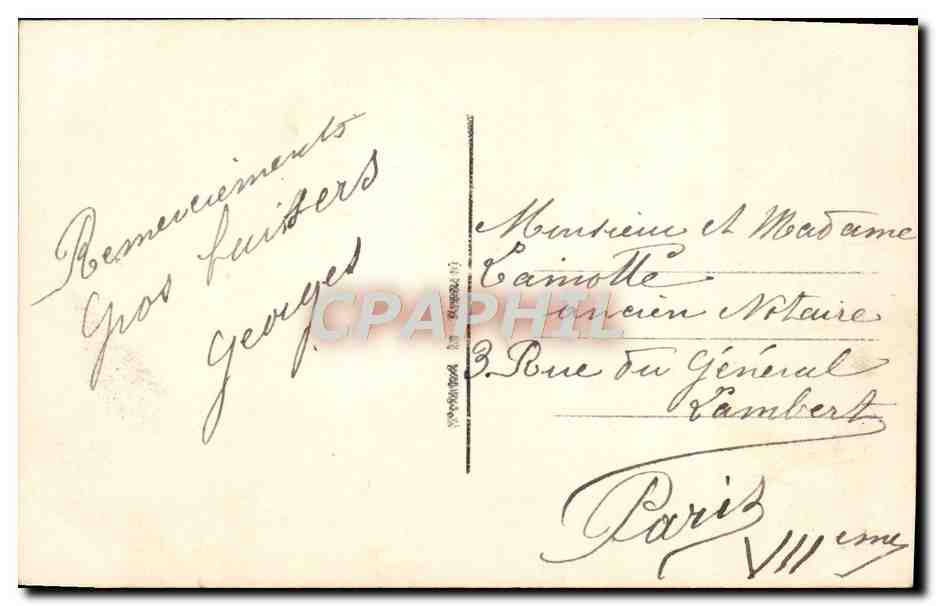 Remerciements
Gros baisers
Georges
Monsieur et Madame
Lamotte
ancien Notaire
3. Rue du Général
Lambert
Paris
VIIeme
CPAPHIL